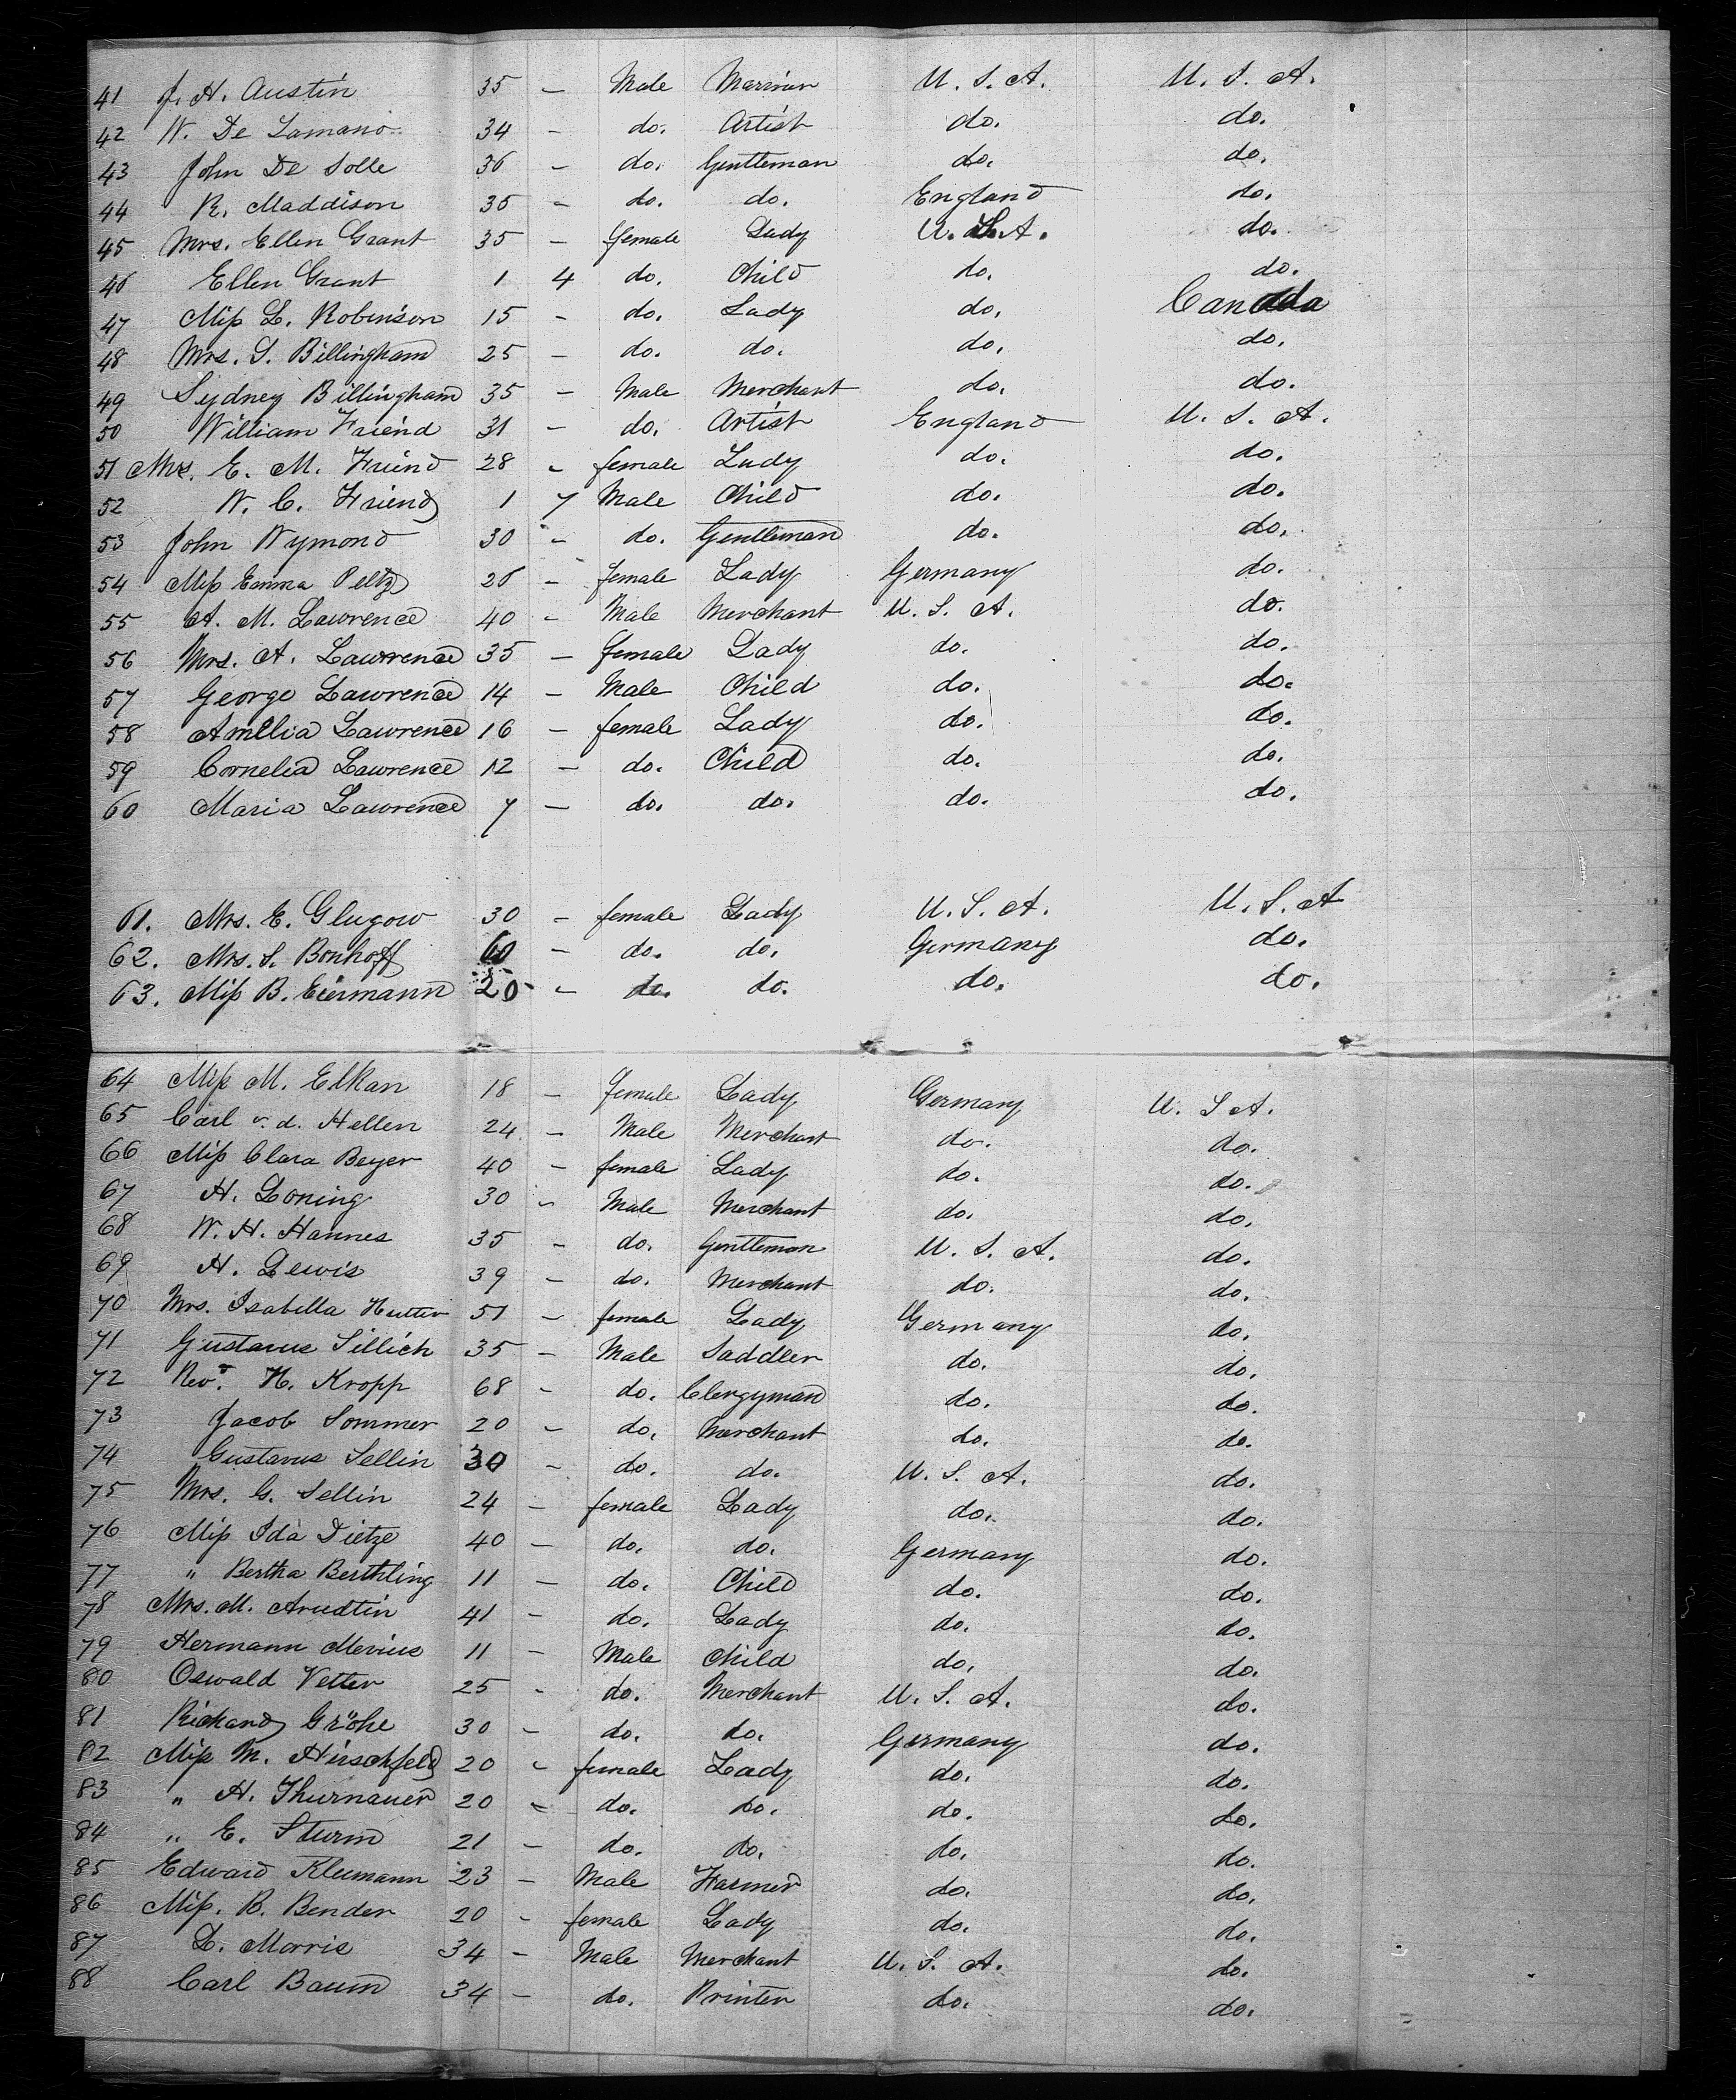 41 J. H. Austin 35 – Male Mariner U. S. A. U. S. A.
42 W. De Lamano 34 – do. Artist do. do.
43 John De Solle 36 – do. Gentleman do. do.
44 R. Maddison 35 – do. do. England do.
45 Mrs. Ellen Grant 35 – female Lady U. S. A. do.
46 Ellen Grant 1 4 do. Child do. do.
47 Miss L. Robinson 15 – do. Lady do. Canada
48 Mrs. S. Billingham 25 – do. do. do. do.
49 Sydney Billingham 35 – Male Merchant do. do.
50 William Friend 31 – do. Artist England U. S. A.
51 Mrs. E. M. Friend 28 – female Lady do. do.
52 W. C. Friend 1 7 Male Child do. do.
53 John Wymond 30 – do. Gentleman do. do.
54 Miss Emma Peltz 26 – female Lady Germany do.
55 A. M. Lawrence 40 – Male Merchant U. S. A. do.
56 Mrs. A. Lawrence 35 – female Lady do. do.
57 George Lawrence 14 – Male Child do. do.
58 Amelia Lawrence 16 – female Lady do. do.
59 Cornelia Lawrence 12 – do. Child do. do.
60 Maria Lawrence 7 – do. do. do. do.
61. Mrs. E. Glugow 30 – female Lady U. S. A. U. S. A
62. Mrs. S. Bonhoff 60 – do. do. Germany do.
63. Miss B. Eiermann 20 – do. do. do. do.
64 Miss M. Elkan 18 – female Lady Germany U. S A.
65 Carl v. d. Hellen 24 – Male Merchant do. do.
66 Miss Clara Beyer 40 – female Lady do. do.
67 H. Loning 30 – Male Merchant do. do.
68 W. H. Hannes 35 – do. Gentleman U. S. A. do.
69 H. Lewis 39 – do. Merchant do. do.
70 Mrs. Isabella Hutter 51 – female Lady Germany do.
71 Gustavus Sillich 35 – Male Saddler do. do.
72 Revd. H. Kropp 68 – do. Clergyman do. do.
73 Jacob Sommer 20 – do. Merchant do. do.
74 Gustavus Sellin 30 – do. do. U. S. A. do.
75 Mrs. G. Sellin 24 – female Lady do. do.
76 Miss Ida Dietze 40 – do. do. Germany do.
77 " Bertha Berthling 11 – do. Child do. do.
78 Mrs. M. Arndtin 41 – do. Lady do. do.
79 Hermann Mevius 11 – Male Child do. do.
80 Oswald Vetter 25 – do. Merchant U. S. A. do.
81 Richard Gröhe 30 – do. do. Germany do.
82 Miss M. Hirschfeld 20 – female Lady do. do.
83 " H. Thurnauer 20 – do. do. do. do.
84 " E. Sturm 21 – do. do. do. do.
85 Edward Kleemann 23 – Male Farmer do. do.
86 Miss. B. Bender 20 – female Lady do. do.
87 L. Morris 34 – Male Merchant U. S. A. do.
88 Carl Baum 34 – do. Printer do. do.